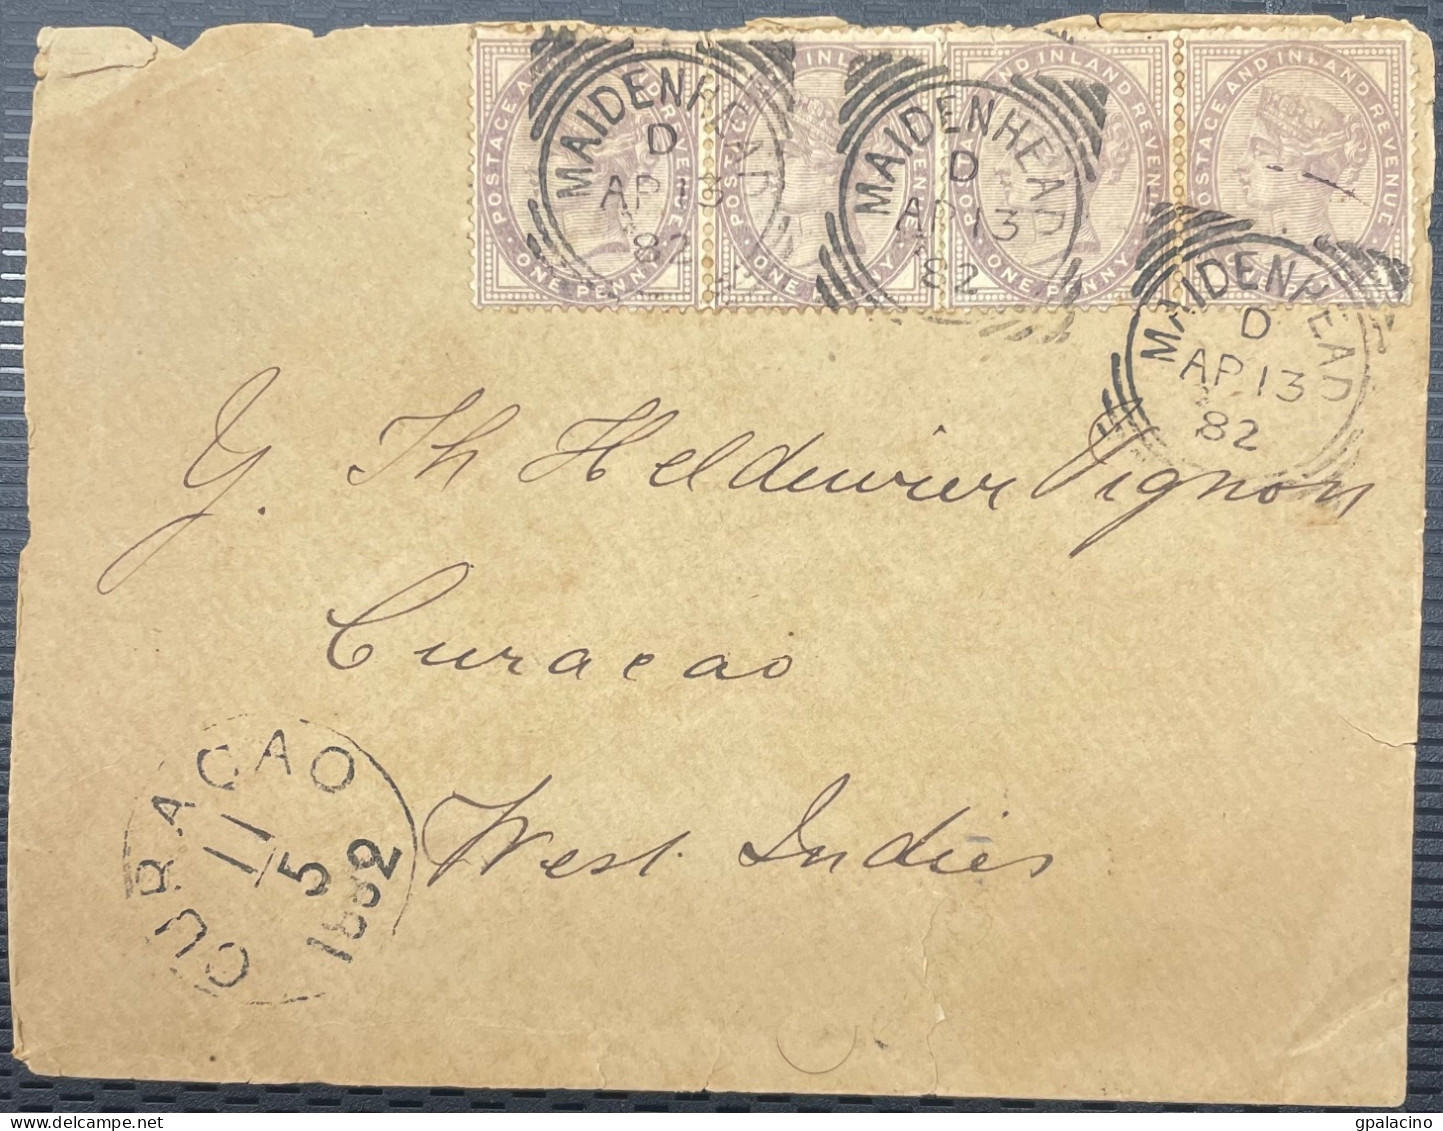 POSTAGE AND INLAND REVENUE
ONE PENNY
POSTAGE AND INLAND REVENUE
ONE PENNY
POSTAGE AND INLAND REVENUE
ONE PENNY
POSTAGE AND INLAND REVENUE
MAIDENHEAD
D
AP 13
82
MAIDENHEAD
D
AP 13
82
MAIDENHEAD
D
AP 13
82
J. Th Heldewier Vignon
Curacao
West Indies
CURACAO
11
5
1882
gpalacino